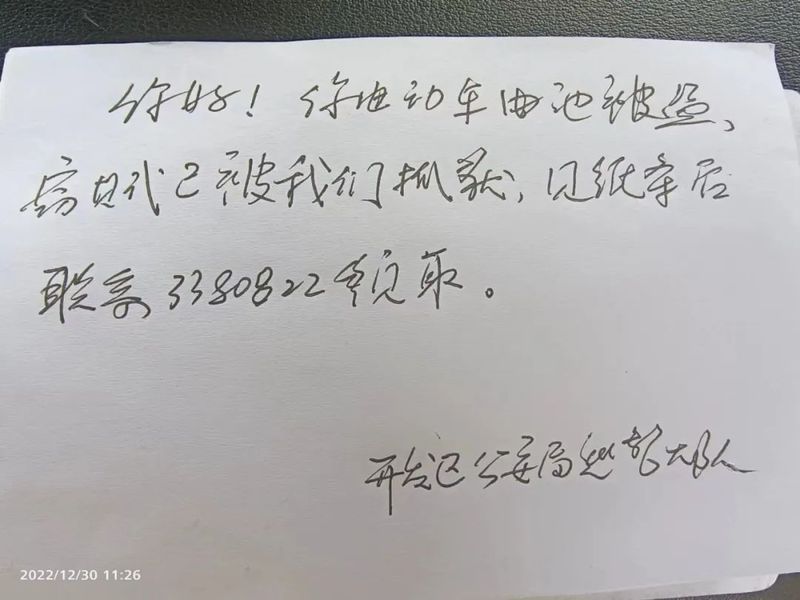 你好！你电动车电池被盗、
窃贼已被我们抓获，见纸条后
联系3380822领取。
开发区公安局巡警大队
2022/12/30 11:26